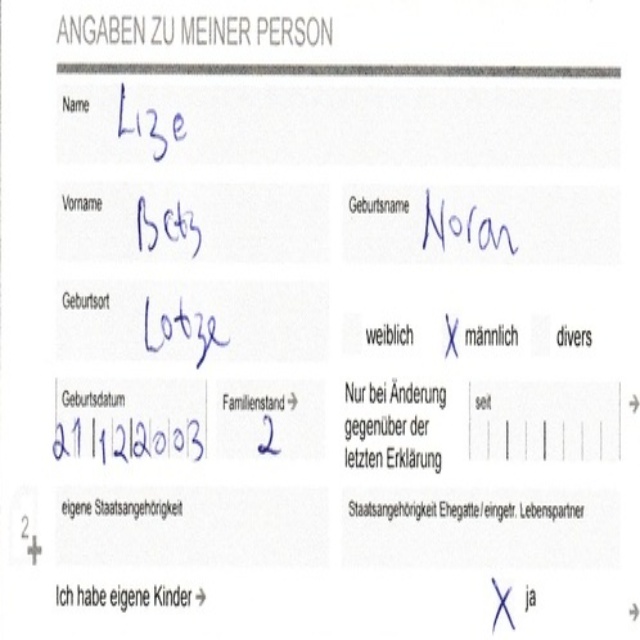 ANGABEN ZU MEINER PERSON
Name Lize
Vorname Betz Geburtsname Noran
Geburtsort Lotze
weiblich X männlich divers
Geburtsdatum 21 12 2003 Familienstand → 2 Nur bei Änderung gegenüber der letzten Erklärung seit →
eigene Staatsangehörigkeit Staatsangehörigkeit Ehegatte/eingetr. Lebenspartner
2
+
Ich habe eigene Kinder → X ja →